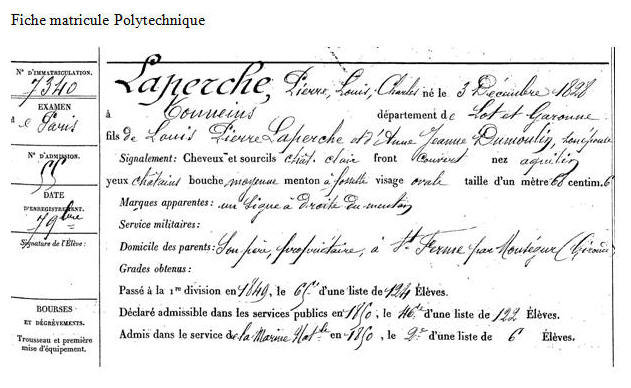 Fiche matricule Polytechnique
N° D'IMMATRICULATION.
7340
EXAMEN
de Paris
N° D'ADMISSION.
55
DATE
D'ENREGISTREMENT.
79bre
Signature de l'Élève :
BOURSES
ET DÉGRÈVEMENTS.
Trousseau et première
mise d'équipement.
Laperche, Pierre, Louis, Charles né le 3 Décembre 1828
à Tonneins département de Lot et Garonne
fils de Louis Pierre Laperche et d'Anne Jeanne Dumoulin, son épouse
Signalement : Cheveux et sourcils chât. clair front couvert nez aquilin
yeux châtains bouche moyenne menton à fossette visage ovale taille d'un mètre 60 centim. 6
Marques apparentes : un signe à droite du menton
Service militaires :
Domicile des parents : Son père, propriétaire, à St Ferme par Monségur (Gironde)
Grades obtenus :
Passé à la 1re division en 1849, le 65e d'une liste de 124 Élèves.
Déclaré admissible dans les services publics en 1850, le 46e d'une liste de 122 Élèves.
Admis dans le service de la Marine Natle en 1850, le 2e d'une liste de 6 Élèves.